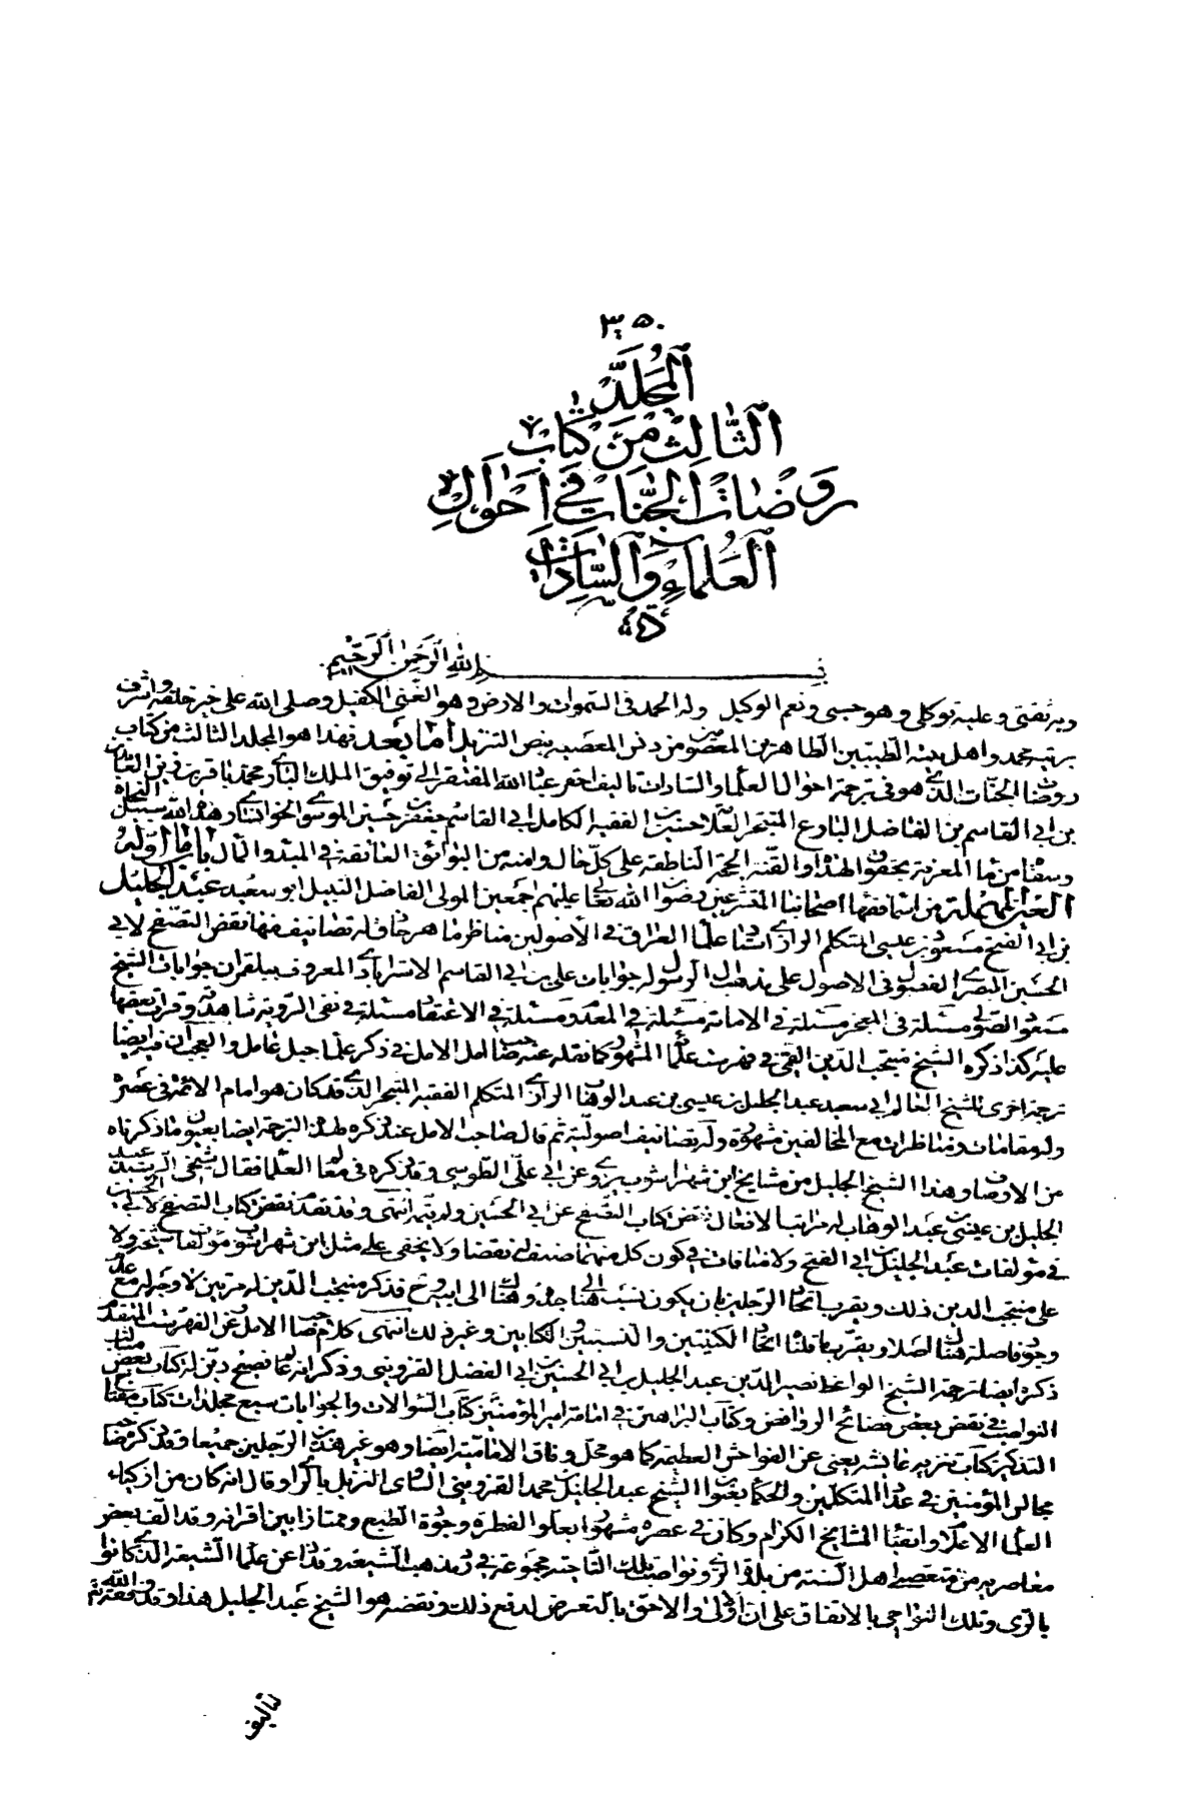 ٣٥٠
المجلد
الثالث من كتاب
روضات الجنات في احوال
العلماء والسادات
بسم الله الرحمن الرحيم
وبه ثقتى وعليه توكلى وهو حسبى ونعم الوكيل وله الحمد فى السموات والارض وهو الغنى الكفيل وصلى الله على خير خلقه واشرف
بريته محمد واهل بيته الطيبين الطاهرين المعصومين من دنس المعصية بنص التنزيل اما بعد فهذا هو المجلد الثالث من كتاب
روضات الجنات الذى هو فى ترجمة احوال العلماء والسادات تاليف احقر عباد الله المفتقر الى توفيق الملك البارى محمد باقر بن زين العابدين
بن ابى القاسم بن الفاضل البارع المتبحر العلامة حسين الفقيه الكامل ابى القاسم جعفر بن حسين الموسوى الخوانسارى هداه الله سبيل النجاة
وسقاه من ماء المعرفة بحقوق الهداة والقته الحجة الناطقة على كل حال وامنه من البوائق العائقة فى المبدء والمال باقامة اوله
العبد من اسانيد فقهاء اصحابنا المتشرعين رضوان الله تعالى عليهم اجمعين المولى الفاضل النبيل ابو سعيد عبد الجليل
بن ابى الفتح مسعود بن عيسى المتكلم الرازى استاد علماء العراق فى الأصولين مناظر ماهر حاذق له تصانيف منها نقض التصفح لابى
الحسين البصرى الفصول فى الاصول على مذهب ال الرسول جوابات على بن ابى القاسم الاسترابادى المعروف ببلقران جوابات الشيخ
مسعود الصوابى مسئلة فى المعجز مسئلة فى الامامة مسئلة فى المعدوم مسئلة فى الاعتقاد مسئلة فى نفى الرؤية شاهدته وقرات بعضها
عليه كذا ذكره الشيخ منتجب الدين القمى فى فهرست علمائنا المشهور كما نقله عنه صاحب امل الامل فى ذكر علماء جبل عامل والعجب ان فيه ايضا
ترجمة اخرى للشيخ العالم ابى سعيد عبد الجليل بن عيسى بن عبد الوهاب الرازى المتكلم الفقيه المتبحر الذى قد كان هو امام الائمة فى عصره
وله مقامات ومناظرات مع المخالفين مشهورة وله تصانيف اصولية ثم قال صاحب الامل عند ذكره لهذه الترجمة ايضا بعنوان ما ذكرناه
من الاوصاف وهذا الشيخ الجليل من مشايخ ابن شهراشوب يروى عن ابى على الطوسى وقد ذكره فى معالم العلماء فقال شيخى الرشيد عبد
الجليل بن عيسى بن عبد الوهاب له مراتب الافعال نقض كتاب التصفح عن ابى الحسين ولم يتمه انتهى وقد تقدم نقض كتاب التصفح لابى الحسين
فى مؤلفات عبد الجليل بن ابى الفتح ولا منافات فى كون كل منهما صنف له نقضا ولا يخفى على مثل ابن شهراشوب مؤلفات شيخه ولا
على منتجب الدين ذلك ويقرب اتحاد الرجلين بان يكون نسب هنا الى جده وهناك الى ابيه وح فذكر منتجب الدين له مرتين لا وجه له مع عدم
وجود فاصلة هناك اصلا ويقرب ما قلنا اتحاد الكنيتين والنسبتين والكتابين وغير ذلك انتهى كلام صاحب الامل وعن الفهرست المتقدم
ذكره ايضا ترجمة الشيخ الواعظ نصير الدين عبد الجليل بن ابى الحسين بن ابى الفضل القزوينى وذكر انه عالم فصيح دين له كتاب بعض مثالب
النواصب فى نقض بعض فضائح الروافض وكتاب البراهين فى امامة امير المؤمنين كتاب السؤالات والجوابات سبع مجلدات كتاب مفتاح
التذكير كتاب تنزيه عائشة يعنى عن الفواحش العظيمة كما هو محل وفاق الامامية ايضا وهو غير هذين الرجلين جميعا وقد ذكره صاحب
مجالس المؤمنين فى عداد المتكلمين والحكماء بعنوان الشيخ عبد الجليل بن محمد القزوينى الشادى النزيل بالرى وقال انه كان من ازكياء
العلماء الاعلام واتقياء المشايخ الكرام وكان فى عصره مشهورا بعلو الفطرة وجودة الطبع وممتازا بين اقرانه وقد الف بعض
معاصريه من متعصبى اهل السنة من بلاد الرى ونواصب تلك الناحية مجموعة فى رد مذهب الشيعة وقد اذعن علماء الشيعة الذين كانوا
بالرى وتلك النواحى بالاتفاق على ان الاولى والاحق بالتعرض لدفع ذلك ونقضه هو الشيخ عبد الجليل هذا وقد وفقه الله
تاليف